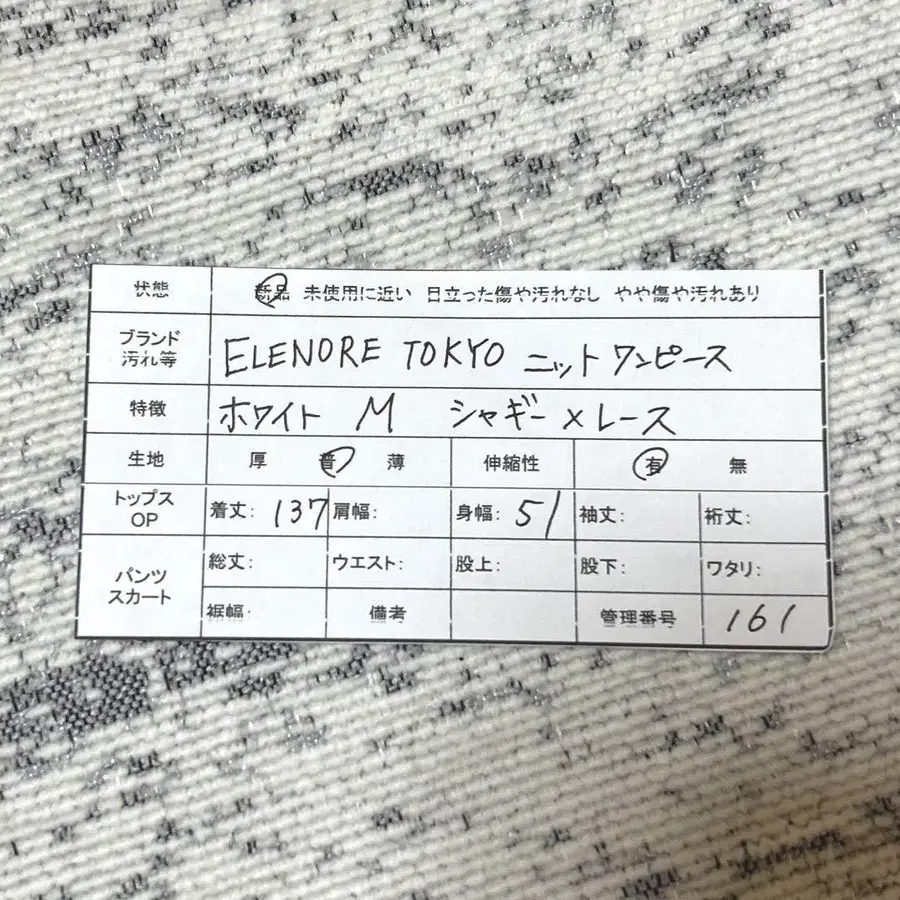 状態 新品 未使用に近い 目立った傷や汚れなし やや傷や汚れあり
ブランド 汚れ等 ELENORE TOKYO ニットワンピース
特徴 ホワイト M シャギー×レース
生地 厚 普 薄 伸縮性 有 無
トップス OP 着丈: 137 肩幅: 身幅: 51 袖丈: 裄丈:
パンツ スカート 総丈: ウエスト: 股上: 股下: ワタリ:
裾幅: 備考 管理番号 161